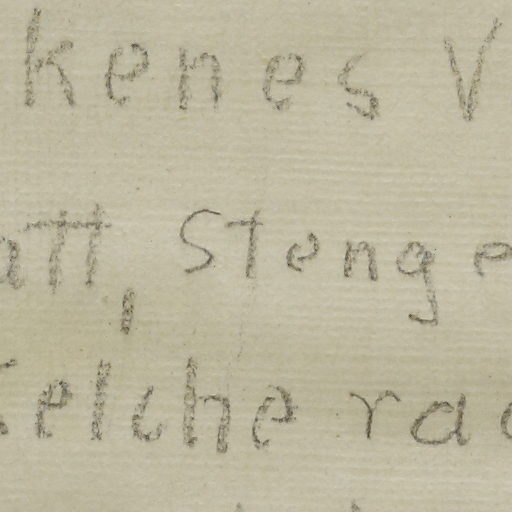 kenes V
att, Stenge
Kelche rad